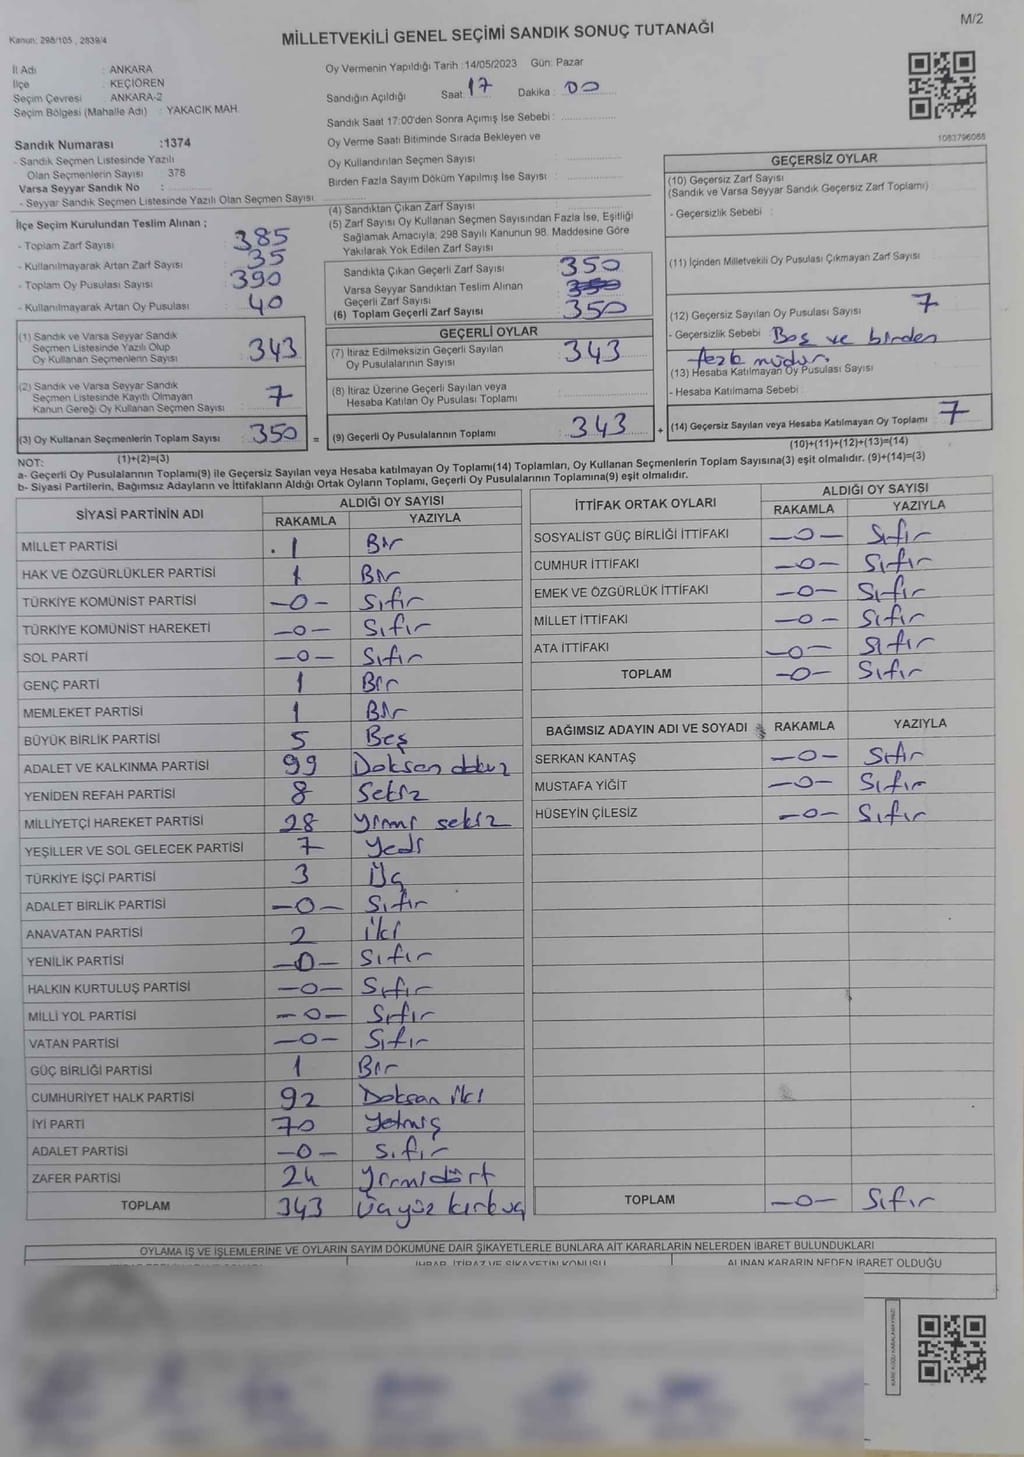 M/2
Kanun: 298/105 , 2839/4
MİLLETVEKİLİ GENEL SEÇİMİ SANDIK SONUÇ TUTANAĞI
İl Adı : ANKARA
İlçe : KEÇİÖREN
Seçim Çevresi : ANKARA-2
Seçim Bölgesi (Mahalle Adı) : YAKACIK MAH.
Oy Vermenin Yapıldığı Tarih :14/05/2023 Gün: Pazar
Sandığın Açıldığı Saat: 17 Dakika : 00
Sandık Saat 17:00'den Sonra Açımış İse Sebebi :
Oy Verme Saati Bitiminde Sırada Bekleyen ve
Oy Kullandırılan Seçmen Sayısı
Birden Fazla Sayım Döküm Yapılmış İse Sayısı :
1083796088
Sandık Numarası :1374
- Sandık Seçmen Listesinde Yazılı
Olan Seçmenlerin Sayısı : 378
Varsa Seyyar Sandık No :
- Seyyar Sandık Seçmen Listesinde Yazılı Olan Seçmen Sayısı :
İlçe Seçim Kurulundan Teslim Alınan ;
- Toplam Zarf Sayısı : 385
- Kullanılmayarak Artan Zarf Sayısı : 35
- Toplam Oy Pusulası Sayısı : 390
- Kullanılmayarak Artan Oy Pusulası : 40
(1) Sandık ve Varsa Seyyar Sandık
Seçmen Listesinde Yazılı Olup
Oy Kullanan Seçmenlerin Sayısı : 343
(2) Sandık ve Varsa Seyyar Sandık
Seçmen Listesinde Kayıtlı Olmayan
Kanun Gereği Oy Kullanan Seçmen Sayısı : 7
(3) Oy Kullanan Seçmenlerin Toplam Sayısı : 350 =
(1)+(2)=(3)
(4) Sandıktan Çıkan Zarf Sayısı
(5) Zarf Sayısı Oy Kullanan Seçmen Sayısından Fazla İse, Eşitliği
Sağlamak Amacıyla, 298 Sayılı Kanunun 98. Maddesine Göre
Yakılarak Yok Edilen Zarf Sayısı
Sandıkta Çıkan Geçerli Zarf Sayısı 350
Varsa Seyyar Sandıktan Teslim Alınan
Geçerli Zarf Sayısı
(6) Toplam Geçerli Zarf Sayısı 350
GEÇERLİ OYLAR
(7) İtiraz Edilmeksizin Geçerli Sayılan
Oy Pusulalarının Sayısı : 343
(8) İtiraz Üzerine Geçerli Sayılan veya
Hesaba Katılan Oy Pusulası Toplamı
(9) Geçerli Oy Pusulalarının Toplamı : 343 +
GEÇERSİZ OYLAR
(10) Geçersiz Zarf Sayısı
(Sandık ve Varsa Seyyar Sandık Geçersiz Zarf Toplamı)
- Geçersizlik Sebebi :
(11) İçinden Milletvekili Oy Pusulası Çıkmayan Zarf Sayısı
(12) Geçersiz Sayılan Oy Pusulası Sayısı : 7
- Geçersizlik Sebebi : Boş ve birden
fazla mühür.
(13) Hesaba Katılmayan Oy Pusulası Sayısı
- Hesaba Katılmama Sebebi :
(14) Geçersiz Sayılan veya Hesaba Katılmayan Oy Toplamı : 7
(10)+(11)+(12)+(13)=(14)
NOT:
a- Geçerli Oy Pusulalarının Toplamı(9) ile Geçersiz Sayılan veya Hesaba katılmayan Oy Toplamı(14) Toplamları, Oy Kullanan Seçmenlerin Toplam Sayısına(3) eşit olmalıdır. (9)+(14)=(3)
b- Siyasi Partilerin, Bağımsız Adayların ve İttifakların Aldığı Ortak Oyların Toplamı, Geçerli Oy Pusulalarının Toplamına(9) eşit olmalıdır.
SİYASİ PARTİNİN ADI ALDIĞI OY SAYISI
RAKAMLA YAZIYLA
MİLLET PARTİSİ 1 Bir
HAK VE ÖZGÜRLÜKLER PARTİSİ 1 Bir
TÜRKİYE KOMÜNİST PARTİSİ -0- Sıfır
TÜRKİYE KOMÜNİST HAREKETİ -0- Sıfır
SOL PARTİ -0- Sıfır
GENÇ PARTİ 1 Bir
MEMLEKET PARTİSİ 1 Bir
BÜYÜK BİRLİK PARTİSİ 5 Beş
ADALET VE KALKINMA PARTİSİ 99 Doksan dokuz
YENİDEN REFAH PARTİSİ 8 Sekiz
MİLLİYETÇİ HAREKET PARTİSİ 28 Yirmi sekiz
YEŞİLLER VE SOL GELECEK PARTİSİ 7 Yedi
TÜRKİYE İŞÇİ PARTİSİ 3 Üç
ADALET BİRLİK PARTİSİ -0- Sıfır
ANAVATAN PARTİSİ 2 İki
YENİLİK PARTİSİ -0- Sıfır
HALKIN KURTULUŞ PARTİSİ -0- Sıfır
MİLLİ YOL PARTİSİ -0- Sıfır
VATAN PARTİSİ -0- Sıfır
GÜÇ BİRLİĞİ PARTİSİ 1 Bir
CUMHURİYET HALK PARTİSİ 92 Doksan iki
İYİ PARTİ 70 Yetmiş
ADALET PARTİSİ -0- Sıfır
ZAFER PARTİSİ 24 Yirmidört
TOPLAM 343 Üçyüz kırküç
İTTİFAK ORTAK OYLARI ALDIĞI OY SAYISI
RAKAMLA YAZIYLA
SOSYALİST GÜÇ BİRLİĞİ İTTİFAKI -0- Sıfır
CUMHUR İTTİFAKI -0- Sıfır
EMEK VE ÖZGÜRLÜK İTTİFAKI -0- Sıfır
MİLLET İTTİFAKI -0- Sıfır
ATA İTTİFAKI -0- Sıfır
TOPLAM -0- Sıfır
BAĞIMSIZ ADAYIN ADI VE SOYADI RAKAMLA YAZIYLA
SERKAN KANTAŞ -0- Sıfır
MUSTAFA YİĞİT -0- Sıfır
HÜSEYİN ÇİLESİZ -0- Sıfır
TOPLAM -0- Sıfır
OYLAMA İŞ VE İŞLEMLERİNE VE OYLARIN SAYIM DÖKÜMÜNE DAİR ŞİKAYETLERLE BUNLARA AİT KARARLARIN NELERDEN İBARET BULUNDUKLARI
İHBAR, İTİRAZ VE ŞİKAYETİN KONUSU ALINAN KARARIN NEDEN İBARET OLDUĞU